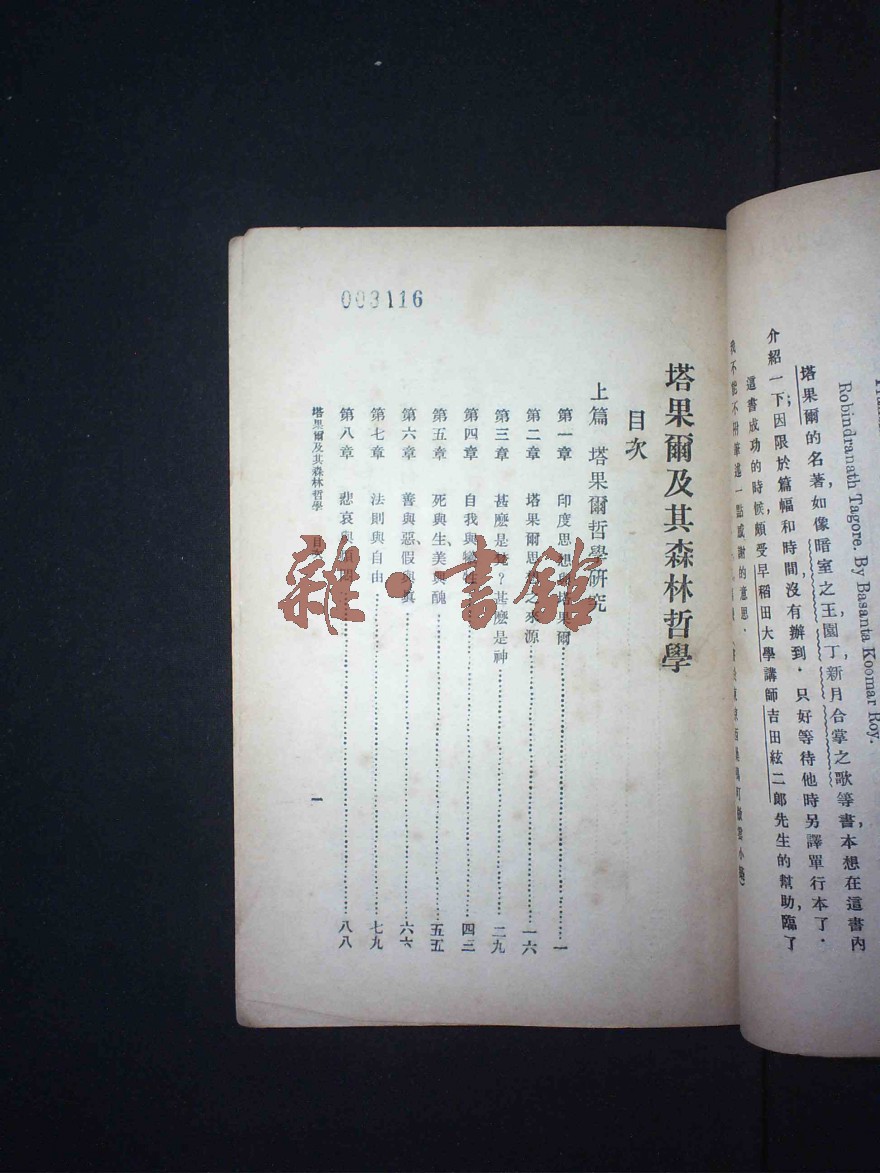 Robindranath Tagore. By Basanta Koomar Roy.
塔果爾的名著,如像暗室之王園丁,新月合掌之歌等書,本想在這書內
介紹一下;因限於篇幅和時間沒有辦到.只好等待他時另譯單行本了.
這書成功的時候,頗受早稻田大學講師吉田絃二郎先生的幫助,臨了
我不能不附筆述一點感謝的意思.
003116
塔果爾及其森林哲學
目次
上篇 塔果爾哲學研究
第一章 印度思想與塔果爾……一
第二章 塔果爾思想之來源……一六
第三章 甚麼是梵?甚麼是神……二九
第四章 自我與……四三
第五章 死與生、美與醜……五五
第六章 善與惡、假與真……六六
第七章 法則與自由……七九
第八章 悲哀與……八八
塔果爾及其森林哲學 目次
一
雜·書館